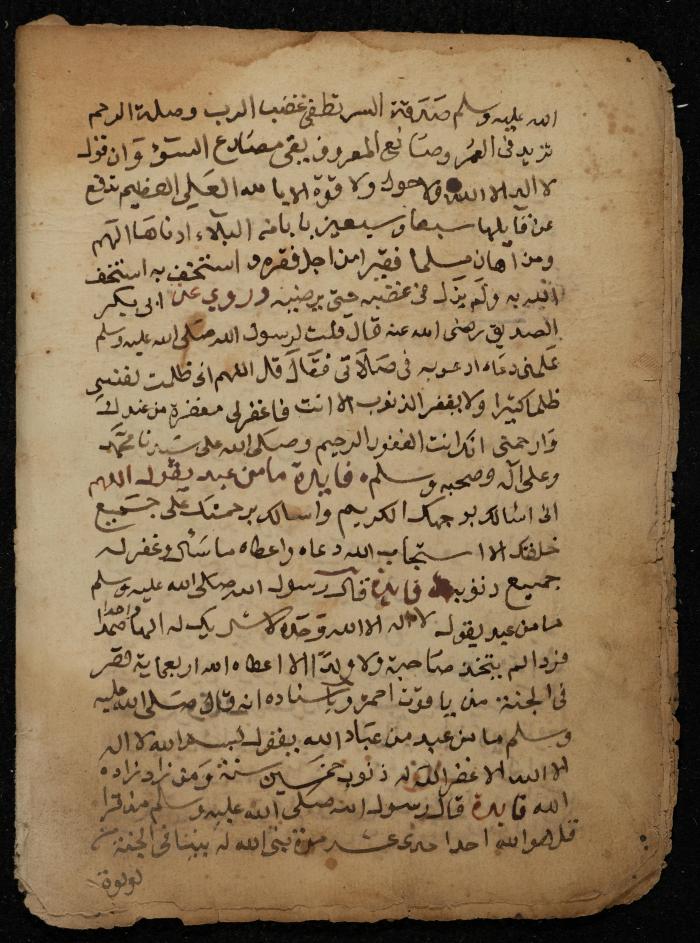 الله عليه وسلم صدقة السر تطفئ غضب الرب وصلة الرحم
تزيد في العمر وصنائع المعروف يقي مصارع السوء وان قول
لا اله الا الله ولا حول ولا قوة الا بالله العلي العظيم تدفع
عن قايلها سبعا وسبعين بابا من البلاء ادناها الهم
ومن اهان مسلما فقيرا من اجل فقره واستخف به استخف
الله به ولم يزل في غضبه حتى يرضيه وروي عن ابي بكر
الصديق رضي الله عنه قال قلت لرسول الله صلى الله عليه وسلم
علمني دعاء ادعو به في صلاتي فقال قل اللهم اني ظلمت نفسي
ظلما كثيرا ولا يغفر الذنوب الا انت فاغفر لي مغفرة من عندك
وارحمني انك انت الغفور الرحيم وصلى الله على سيدنا محمد
وعلى آله وصحبه وسلم فايدة ما من عبد يقول اللهم
اني اسالك بوجهك الكريم واسالك برحمتك على جميع
خلقك الا استجاب الله دعاه واعطاه ما سأل وغفر له
جميع ذنوبه فايدة قال رسول الله صلى الله عليه وسلم
ما من عبد يقول لا اله الا الله وحده لا شريك له الها واحدا صمدا
فردا لم يتخذ صاحبة ولا ولدا الا اعطاه الله اربعماية قصر
في الجنة من ياقوت احمر وباسناده انه قال صلى الله عليه
وسلم ما من عبد من عباد الله يقول بسم الله لا اله
الا الله الا غفر الله له ذنوب خمسين سنة ومن زاد زاده
الله فايدة قال رسول الله صلى الله عليه وسلم من قرا
قل هو الله احد احدى عشر مرة بنى الله له بيتا في الجنة من
لولوة